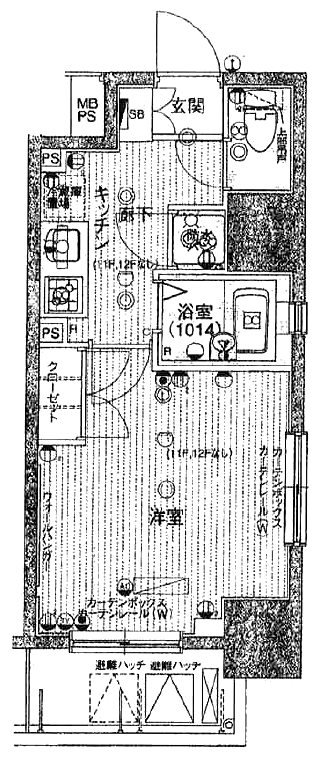 MB
PS
SB
玄関
上部吊戸
PS
冷蔵庫
置場
キッチン
廊下
防水
(11F,12Fなし)
浴室
(1014)
PS
R
R
クローゼット
(11F,12Fなし)
洋室
カーテンボックス
カーテンレール(W)
ウォールハンガー
カーテンボックス
カーテンレール(W)
避難ハッチ
避難ハッチ